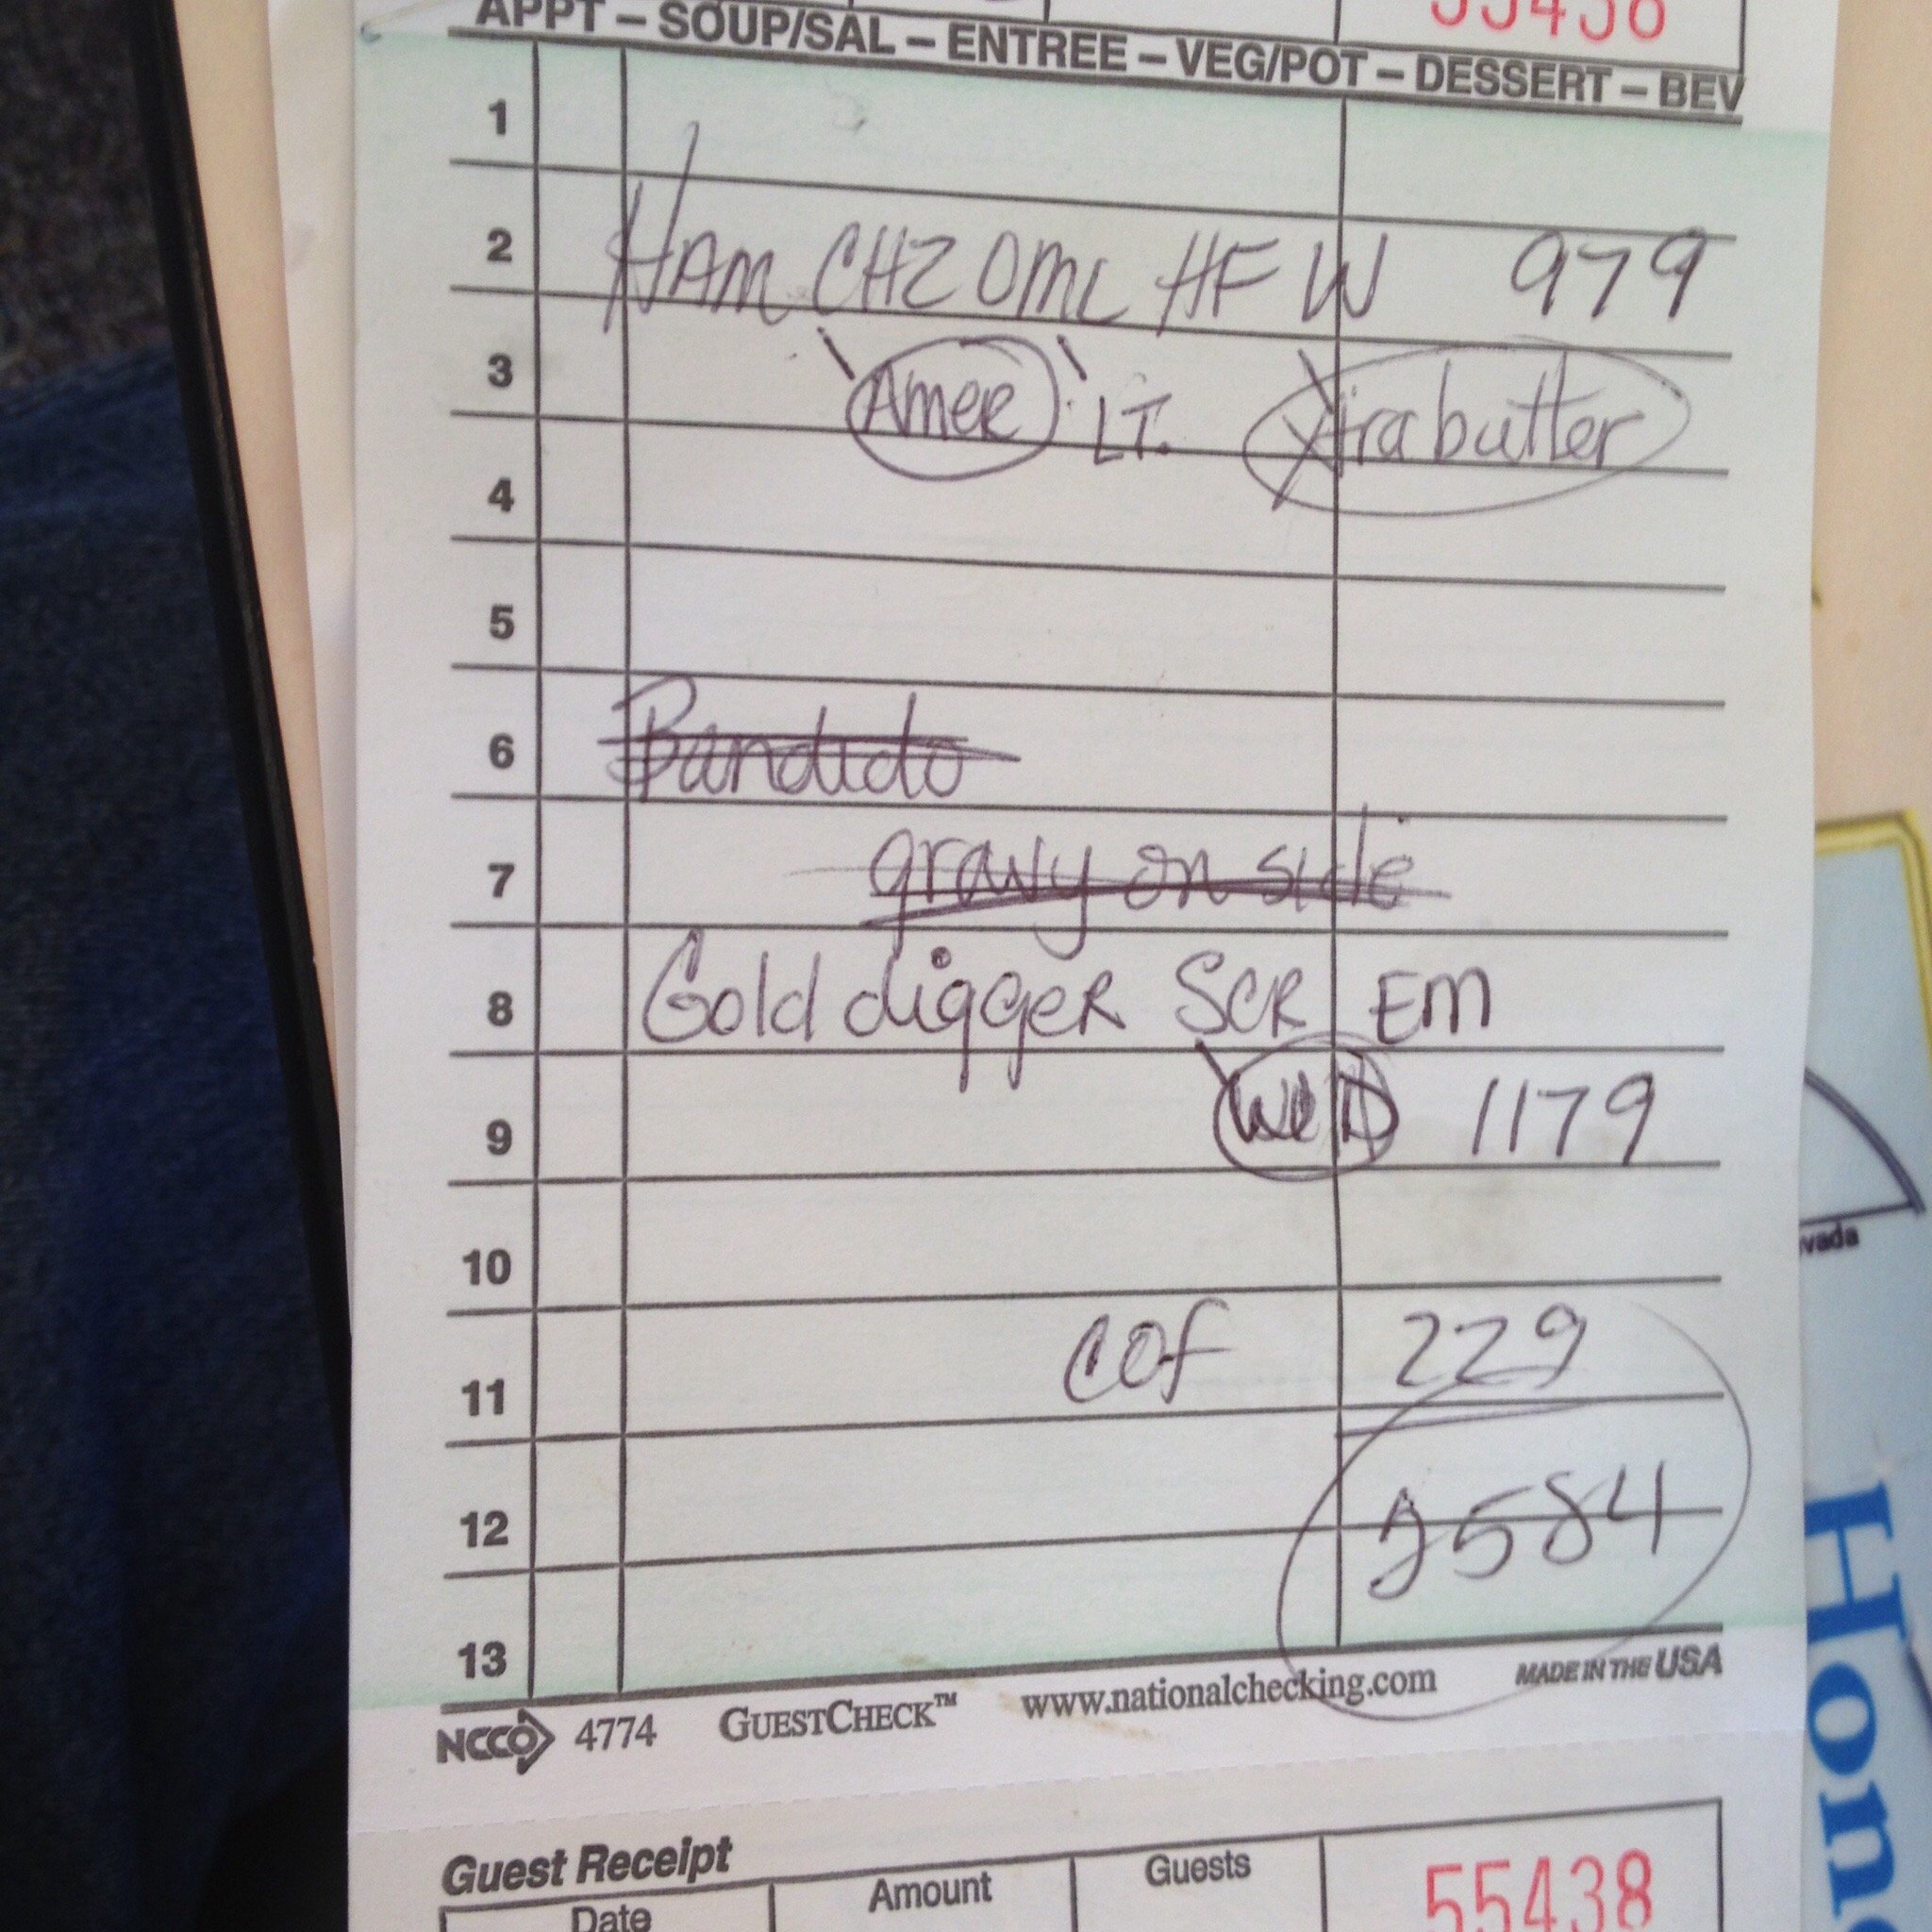 55438
APPT – SOUP/SAL – ENTREE – VEG/POT – DESSERT – BEV
1
2 HAM CHZ OML HF W 979
3 Amer LT. Xtra butter
4
5
6 Bandido
7 gravy on side
8 Gold digger SCR EM
9 1179
10
11 COF 229
12 2584
13
NCCO 4774 GUESTCHECK™ www.nationalchecking.com MADE IN THE USA
Guest Receipt
Date Amount Guests 55438
vada
Hon